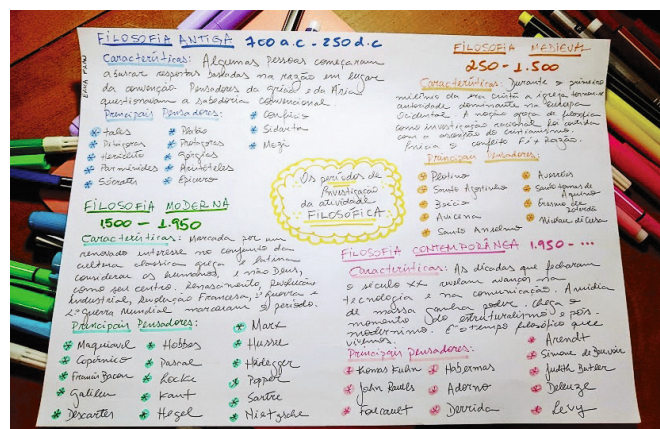 FILOSOFIA ANTIGA 700 a.c - 250 d.c
Características: Algumas pessoas começaram
a buscar respostas baseadas na razão em lugar
da convenção Pensadores da grécia e da Ásia
questionavam a sabedoria convencional
Principais Pensadores:
Tales
Pitágoras
Heráclito
Parmênides
Sócrates
Platão
Protágoras
Górgias
Aristóteles
Epicuro
Confúcio
Sidarta
Mozi
FILOSOFIA MEDIEVAL
250 - 1.500
Características: Durante o primeiro
milênio da era cristã a igreja tornou-se
autoridade dominante na Europa
Ocidental. A noção grega de filosofia
como investigação racional, foi contida
com a ascenção do cristianismo.
Inicia o conflito Fé x Razão.
Principais Pensadores:
Plotino
Santo Agostinho
Boécio
Avicena
Santo Anselmo
Averróis
Santo Tomas de
Aquino
Erasmo de
Roterdã
Nicolau di Cusa
Os períodos de
Investigação
da atividade
FILOSÓFICA
FILOSOFIA MODERNA
1500 - 1.950
Características: Marcada por um
renovado interesse no conjunto da
cultura clássica grega e latina
considerar os humanos, e não Deus,
como seu centro. Renascimento, Revolução
Industrial, Revolução Francesa, 1ª guerra e
2ª guerra Mundial marcaram o período.
Principais Pensadores:
Maquiavel
Copérnico
Francis Bacon
Galileu
Descartes
Hobbes
Pascal
Locke
Kant
Hegel
Marx
Husserl
Heidegger
Popper
Sartre
Nietzsche
FILOSOFIA CONTEMPORÂNEA 1.950 - ...
Características: As décadas que fecharam
o século XX revelam avanços na
tecnologia e na comunicação. A mídia
de massa ganha poder, chega o
momento do estruturalismo e pós-
modernismo. É o tempo filosófico que
vivemos.
Principais pensadores:
Thomas Kuhn
John Rawls
Foucault
Habermas
Adorno
Derrida
Arendt
Simone de Beauvoir
Judith Butler
Deleuze
Levy